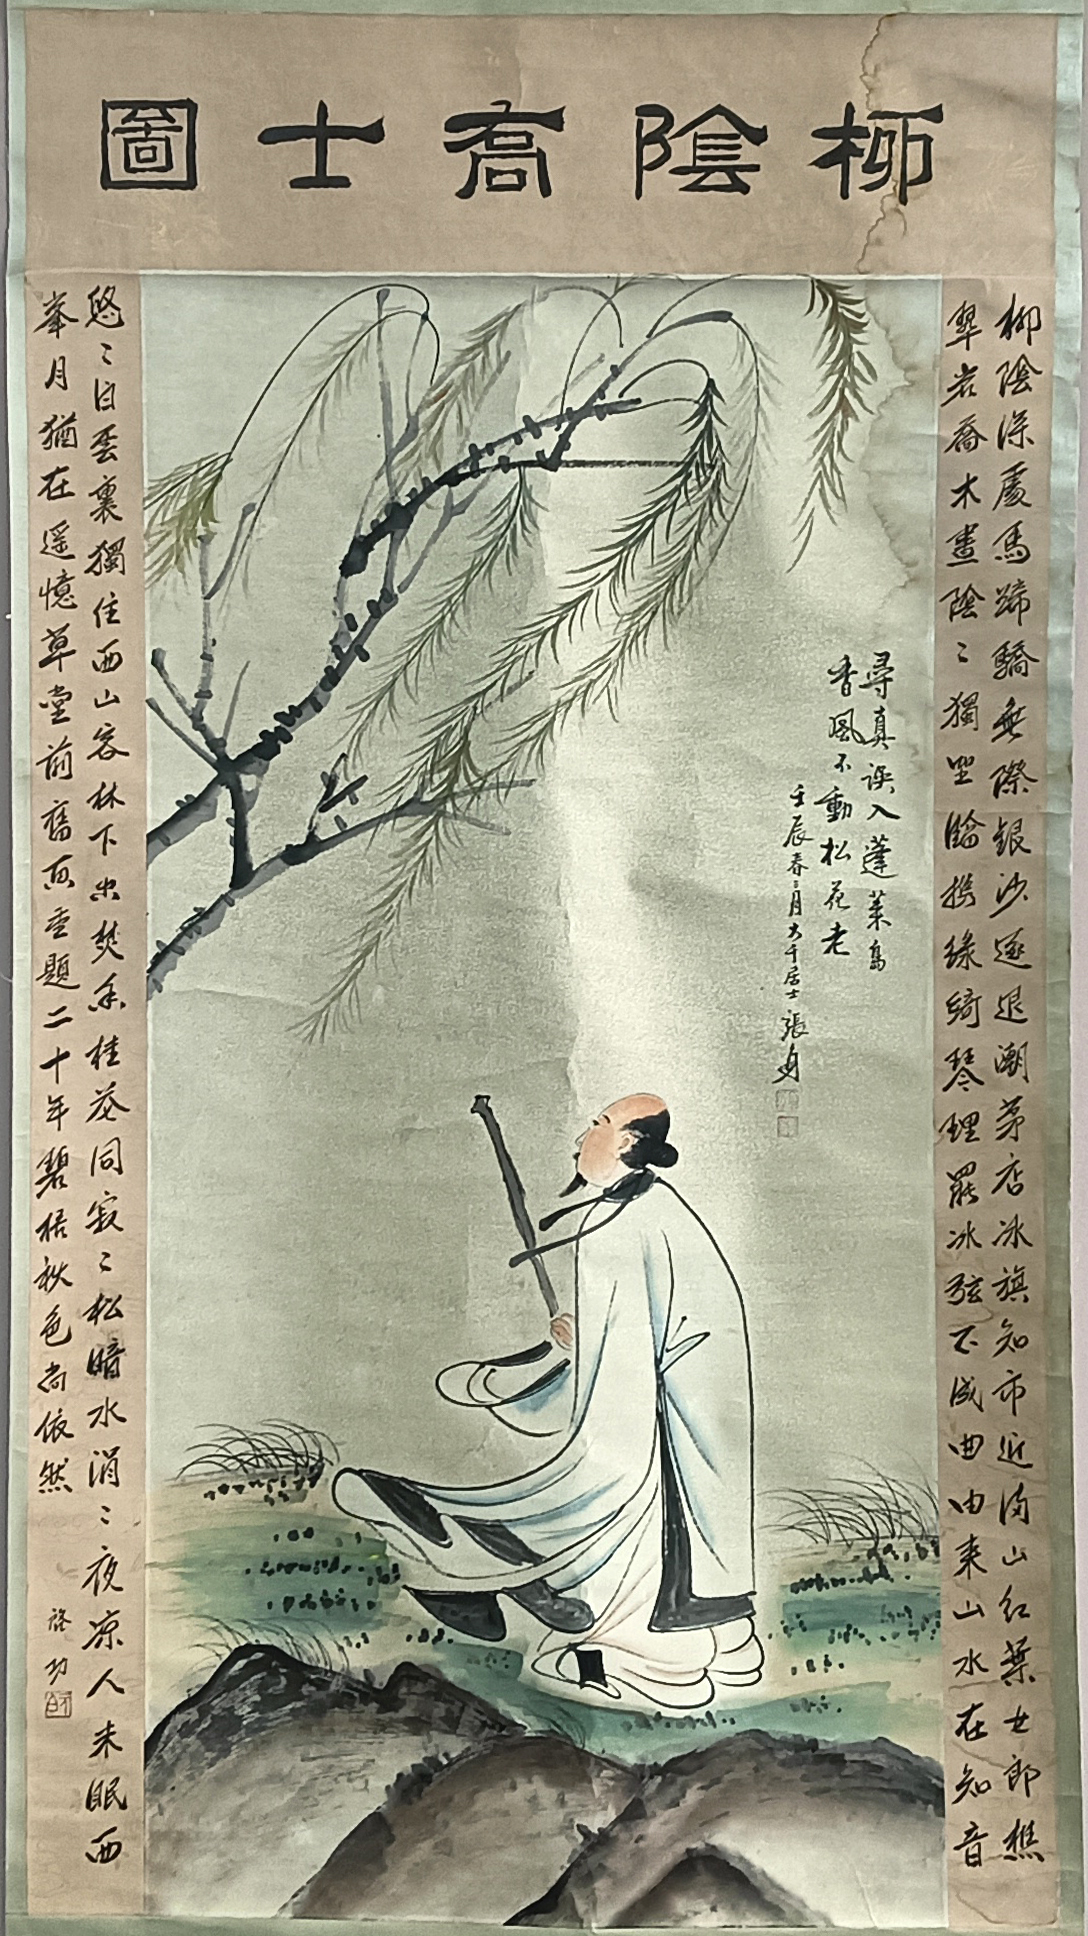 柳陰高士圖
柳陰深處馬蹄驕無際銀沙逐退潮茅店冰旗知市近滿山紅葉女郎樵
翠岩喬木晝陰〻獨坐臨携綠綺琴理罷冰弦不成曲由來山水在知音
尋真誤入蓬萊島
香風不動松花老
壬辰春二月大千居士張爰
悠〻白雲裏獨住西山客林下尖焚香桂花同寂〻松暗水涓〻夜凉人未眠西
峯月猶在遥憶草堂前舊題二十年碧梧秋色尚依然
啓功